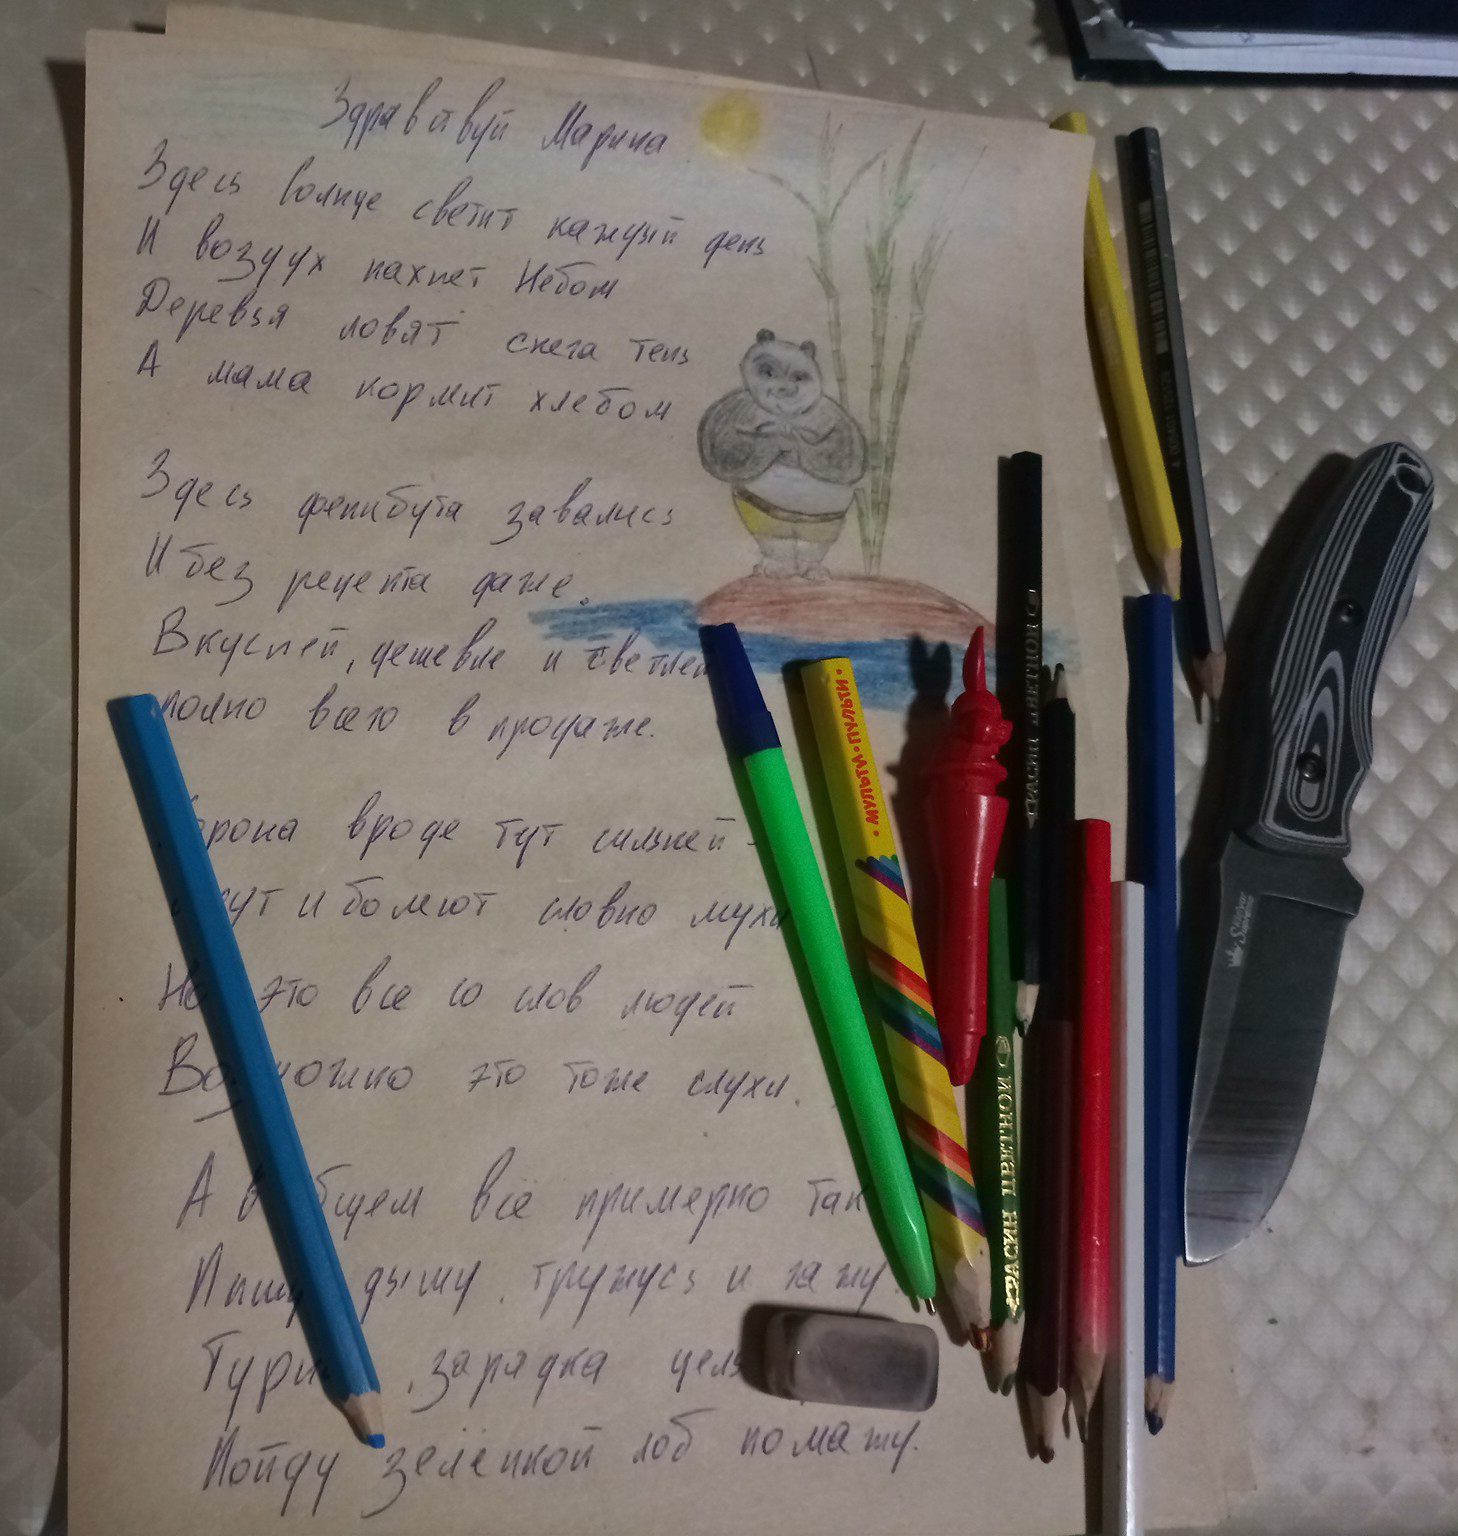 Здравствуй Марина
Здесь солнце светит каждый день
И воздух пахнет Небом
Деревья ловят снега тень
А мама кормит хлебом
Здесь фенибута завались
И без рецепта даже.
Вкусней, дешевле и светлей
полно всего в продаже.
вроде тут сильней
и болеют словно мухи
Но это все со слов людей
Возможно это тоже слухи.
А в общем всё примерно так
Пишу, дышу, тружусь и гажу.
зарядка
Пойду зелёнкой лоб помажу.
МУЛЬТИ • ПУЛЬТИ
КРАСИН ЦВЕТНОЙ
КРАСИН ЦВЕТНОЙ